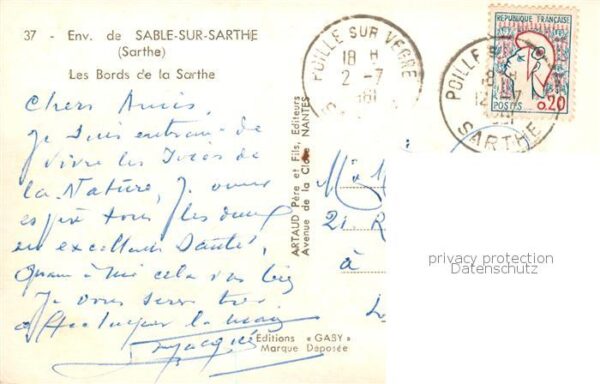 37 - Env. de SABLE-SUR-SARTHE
(Sarthe)
Les Bords de la Sarthe
Chers Amis,
Je suis entrain de
vivre les Joies de
la Nature, Je vous
espère tous les deux
en excellente Santé,
Quant à moi cela va bien
Je vous serre très
affectueusement la main
Jacques
ARTAUD Père et Fils, Editeurs
Avenue de la Close NANTES
Editions « GABY »
Marque Déposée
POILLE SUR VEGRE
18 H
2 -7
POILLE S
8 H
12 -7
SARTHE
REPUBLIQUE FRANÇAISE
POSTES 0,20
21. R
à
privacy protection
Datenschutz